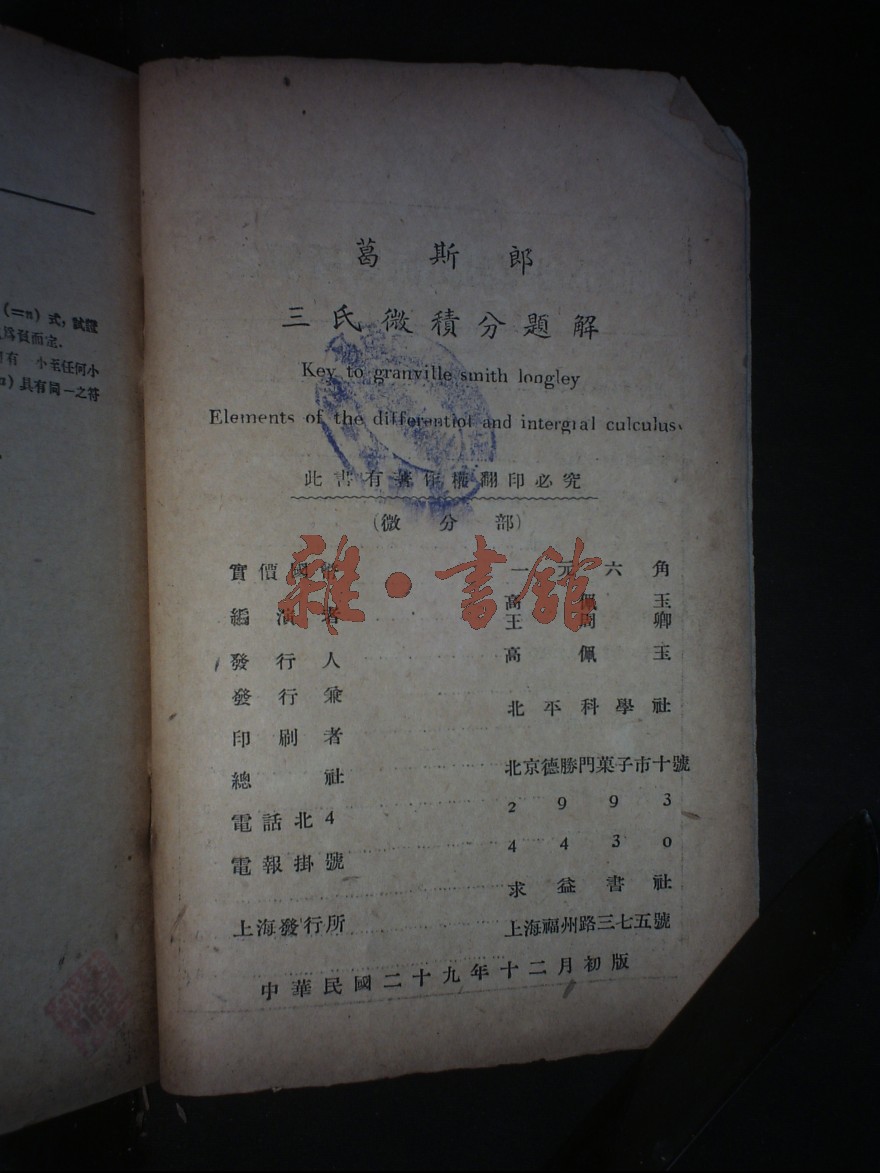 (=n)式,試證
爲負而定.
有 小至任何小
)具有同一之符
葛斯郎
三氏微積分題解
Key to granville smith longley
Elements of the differentiot and intergral culculus
此書有著作權翻印必究
(微分部)
實價國幣 一元六角
編演者 高佩玉
王周卿
發行人 高佩玉
發行兼
印刷者 北平科學社
總社 北京德勝門菓子市十號
電話北4 2993
電報掛號 4430
求益書社
上海發行所 上海福州路三七五號
中華民國二十九年十二月初版
雜·書館